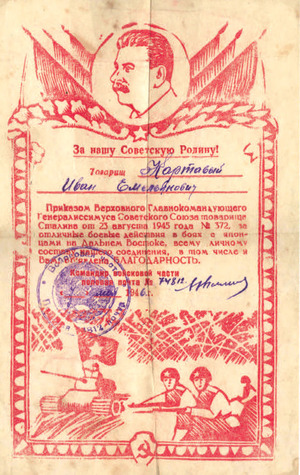 За нашу Советскую Родину!
Товарищ Картавый
Иван Емельянович
Приказом Верховного Главнокомандующего
Генералиссимуса Советского Союза товарища
Сталина от 23 августа 1945 года № 372, за
отличные боевые действия в боях с япон-
цами на Дальнем Востоке, всему личному
составу нашего соединения, в том числе и
Вам объявлена БЛАГОДАРНОСТЬ.
Командир войсковой части
полевая почта №
1946 г.